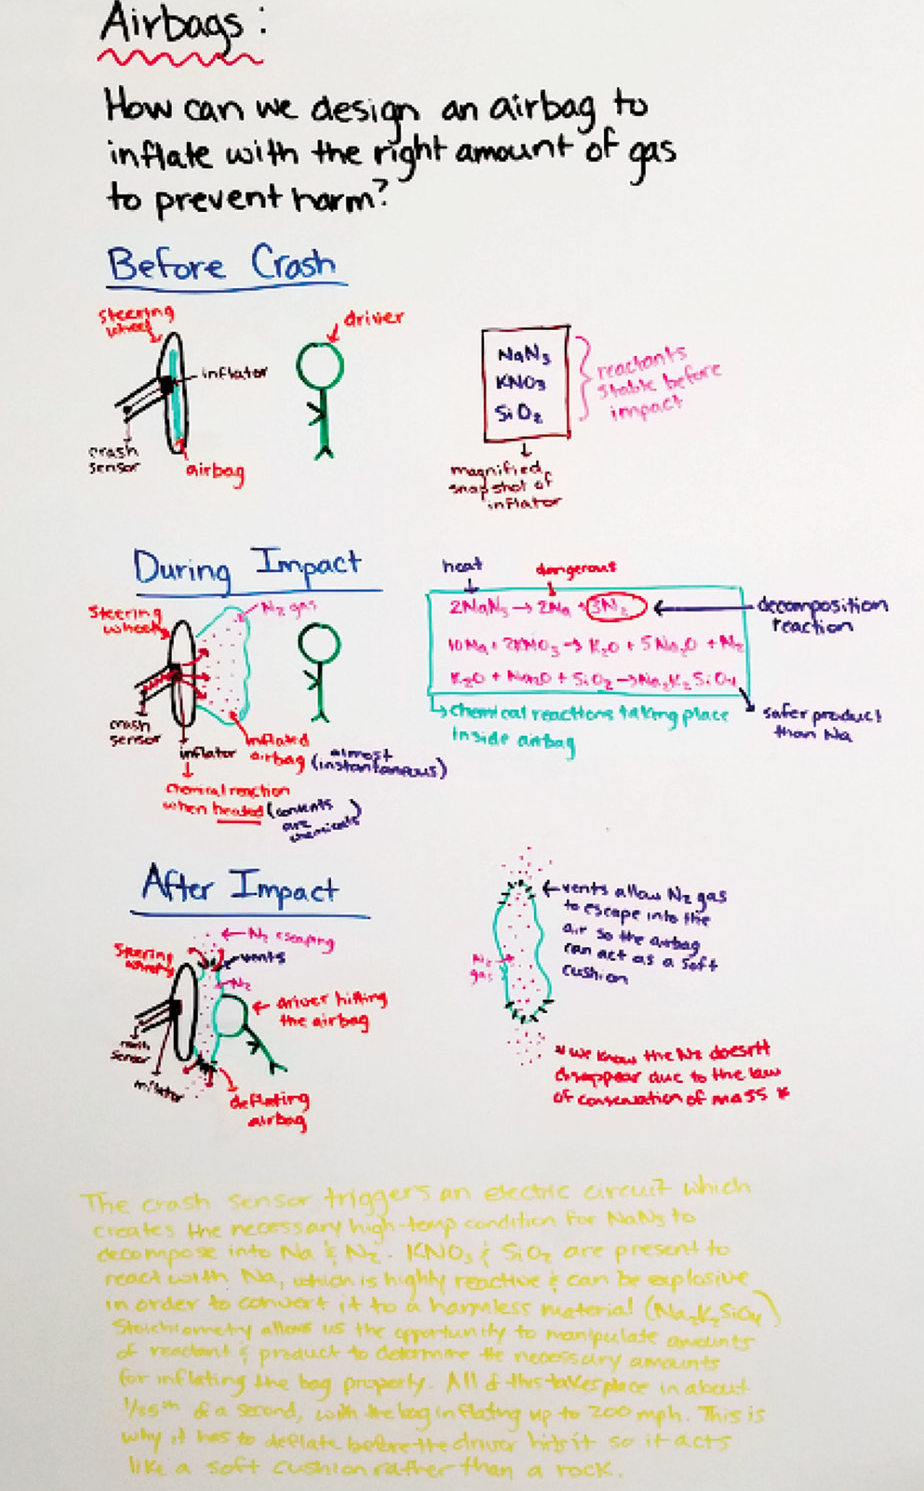 Airbags:
How can we design an airbag to
inflate with the right amount of gas
to prevent harm?
Before Crash
steering
wheel
driver
inflator
crash
sensor
airbag
NaN₃
KNO₃
SiO₂
reactants
stable before
impact
magnified
snapshot of
inflator
During Impact
Steering
wheel
N₂ gas
crash
sensor
inflator
inflated
airbag (almost
instantaneous)
chemical reaction
when heated (contents
are
chemicals)
heat
dangerous
2NaN₃ → 2Na + 3N₂
decomposition
reaction
10Na + 2KNO₃ → K₂O + 5Na₂O + N₂
K₂O + Na₂O + SiO₂ → Na₂K₂SiO₄
chemical reactions taking place
inside airbag
safer product
than Na
After Impact
N₂ escaping
vents
Steering
wheel
N₂
driver hitting
the airbag
crash
sensor
inflator
deflating
airbag
vents allow N₂ gas
to escape into the
air so the airbag
can act as a soft
cushion
N₂
gas
* we know the N₂ doesn't
disappear due to the law
of conservation of mass *
The crash sensor triggers an electric circuit which
creates the necessary high-temp condition for NaN₃ to
decompose into Na & N₂. KNO₃ & SiO₂ are present to
react with Na, which is highly reactive & can be explosive
in order to convert it to a harmless material (Na₂K₂SiO₄)
Stoichiometry allows us the opportunity to manipulate amounts
of reactant & product to determine the necessary amounts
for inflating the bag properly. All of this takes place in about
1/25th of a second, with the bag inflating up to 200 mph. This is
why it has to deflate before the driver hits it so it acts
like a soft cushion rather than a rock.